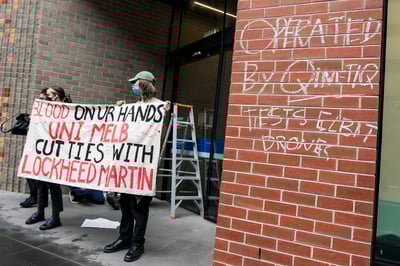 BLOOD ON UR HANDS
UNI MELB
CUT TIES WITH
LOCKHEED MARTIN
OPERATED
BY QINETIQ
TESTS ELBIT
DRONES